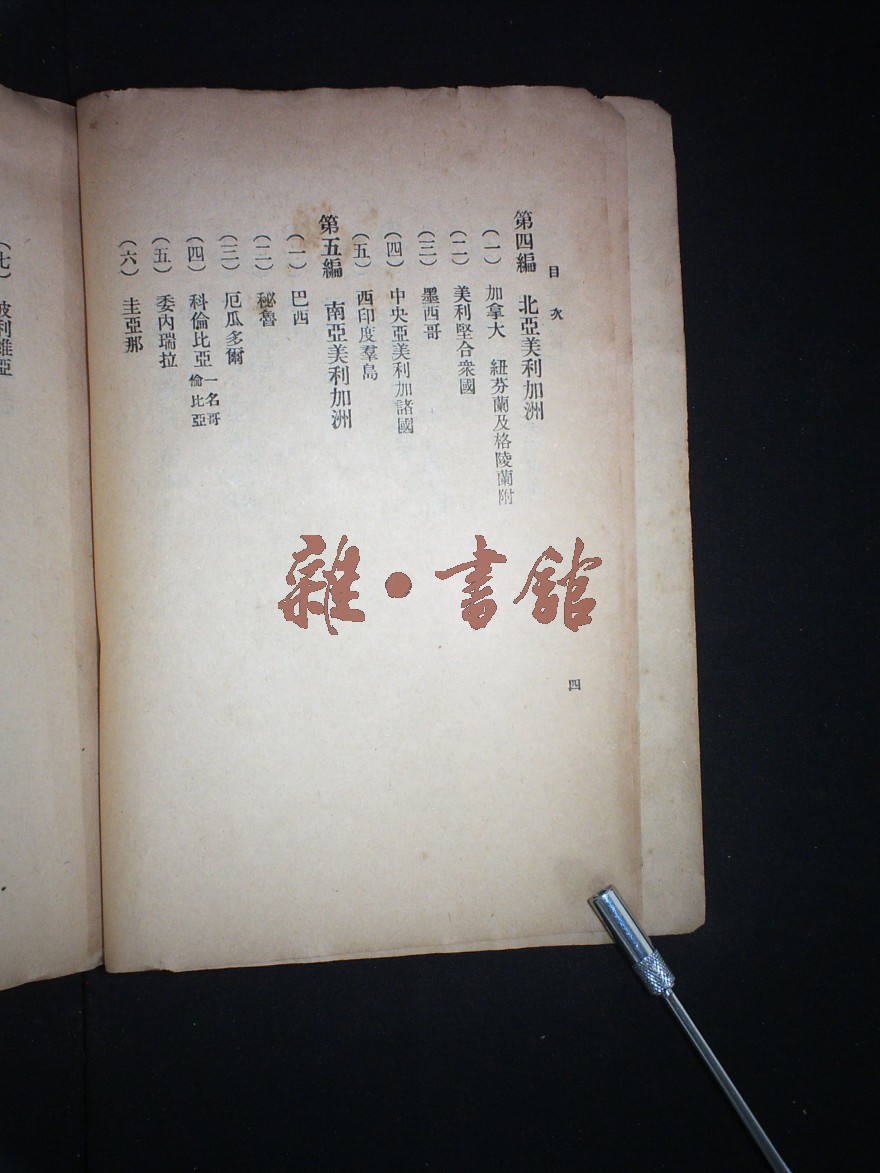 目次
第四編 北亞美利加洲
(一) 加拿大 紐芬蘭及格陵蘭附
(二) 美利堅合衆國
(三) 墨西哥
(四) 中央亞美利加諸國
(五) 西印度羣島
第五編 南亞美利加洲
(一) 巴西
(二) 秘魯
(三) 厄瓜多爾
(四) 科倫比亞 一名哥倫比亞
(五) 委內瑞拉
(六) 圭亞那
四
(七) 玻利維亞
雜•書館